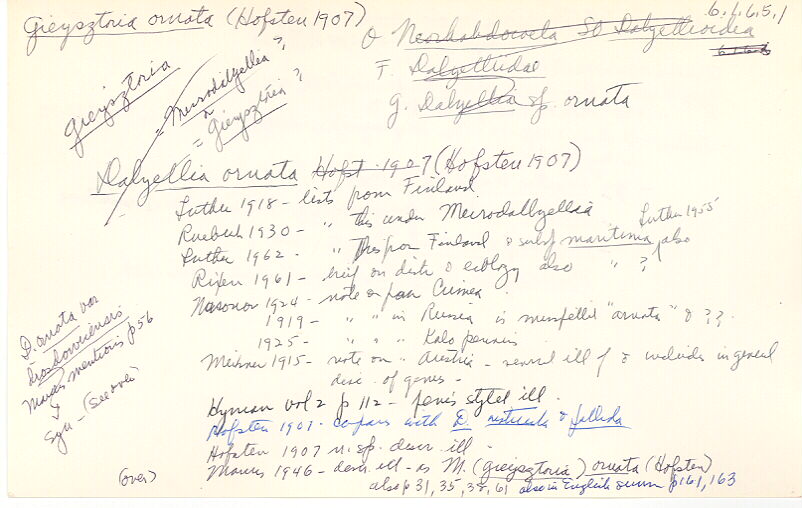 Gieysztoria ornata (Hofsten 1907)
6.1.6.5.1
O Neorhabdocoela SO Dalyellioidea
F. Dalyelliidae
g. Dalyellia sp. ornata
Gieysztoria
= Meirodalyellia ?
= Gieysztoria ?
Dalyellia ornata Hofst. 1907 (Hofsten 1907)
Luther 1918 - lists from Finland
Ruebush 1930 - " this under Meirodallyellia
Luther 1955
Luther 1962 - " this from Finland & subsp maritima, also
Rixen 1961 - brief on distr & ecology also " ?
Nasonov 1924 - note on from Crimea
1919 - " " in Russia is misspelled "arnata" & ??
1925 - " " " Kola
Meixner 1915 - note on " Austria - several ill of & includes in general
desc. of genus -
Hyman vol 2 p 112 - penis stylet ill.
Hofsten 1907 - compares with D. & pallida
Hofsten 1907 n. sp. descr. ill -
Marcus 1946 - descr. ill - as M. (Gieysztoria) ornata (Hofsten)
also p 31, 35, 38, 61 also in English summ p 161, 163
D. ornata var
Marcus mentions p 56
Syn - (see over)
(over)